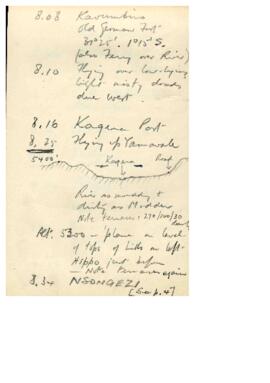 8.08 Kavumbiro
Old German Fort
30°25'. 1°15' S.
(also Ferry over River)
8.10 Flying over low-lying
light misty clouds
due west.
8.16 Kagera Port
8.25 Flying up
5400' Kagera
River as muddy &
dirty as Modder
Note terraces: 270/100/30
Alt. 5300 - plane on level
of tops of hills on left
Hippo just before
- Note terraces again
8.34 NSONGEZI
[See p. 4]